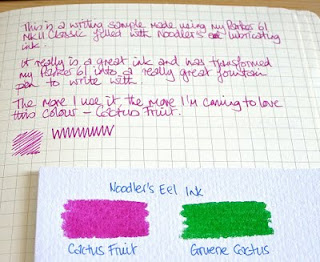 This is a writing sample made using my Parker 61
MkII Classic filled with Noodler's lubricating
ink.
It really is a great ink and has transformed
my Parker 61 into a really great fountain
pen to write with.
The more I use it, the more I'm coming to love
this colour - Cactus Fruit.
Noodler's Eel Ink
Cactus Fruit
Gruene Cactus